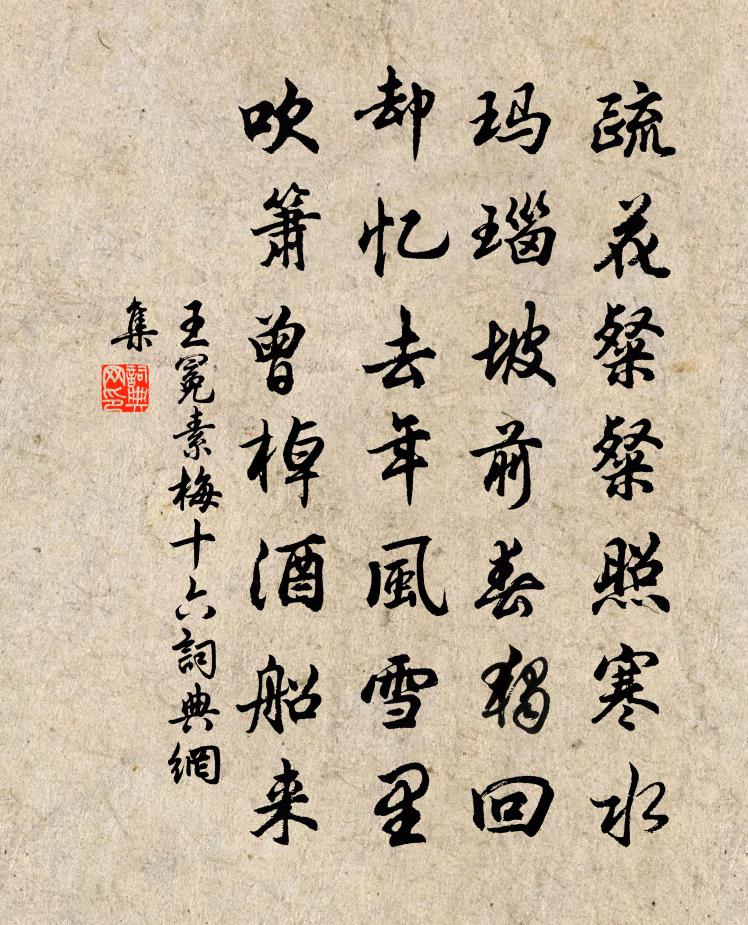 疏花粲粲照寒水
玛瑙坡前春独回
却忆去年風雪里
吹箫曾棹酒船来
王冕素梅十六詞典網
集
詞典
网印